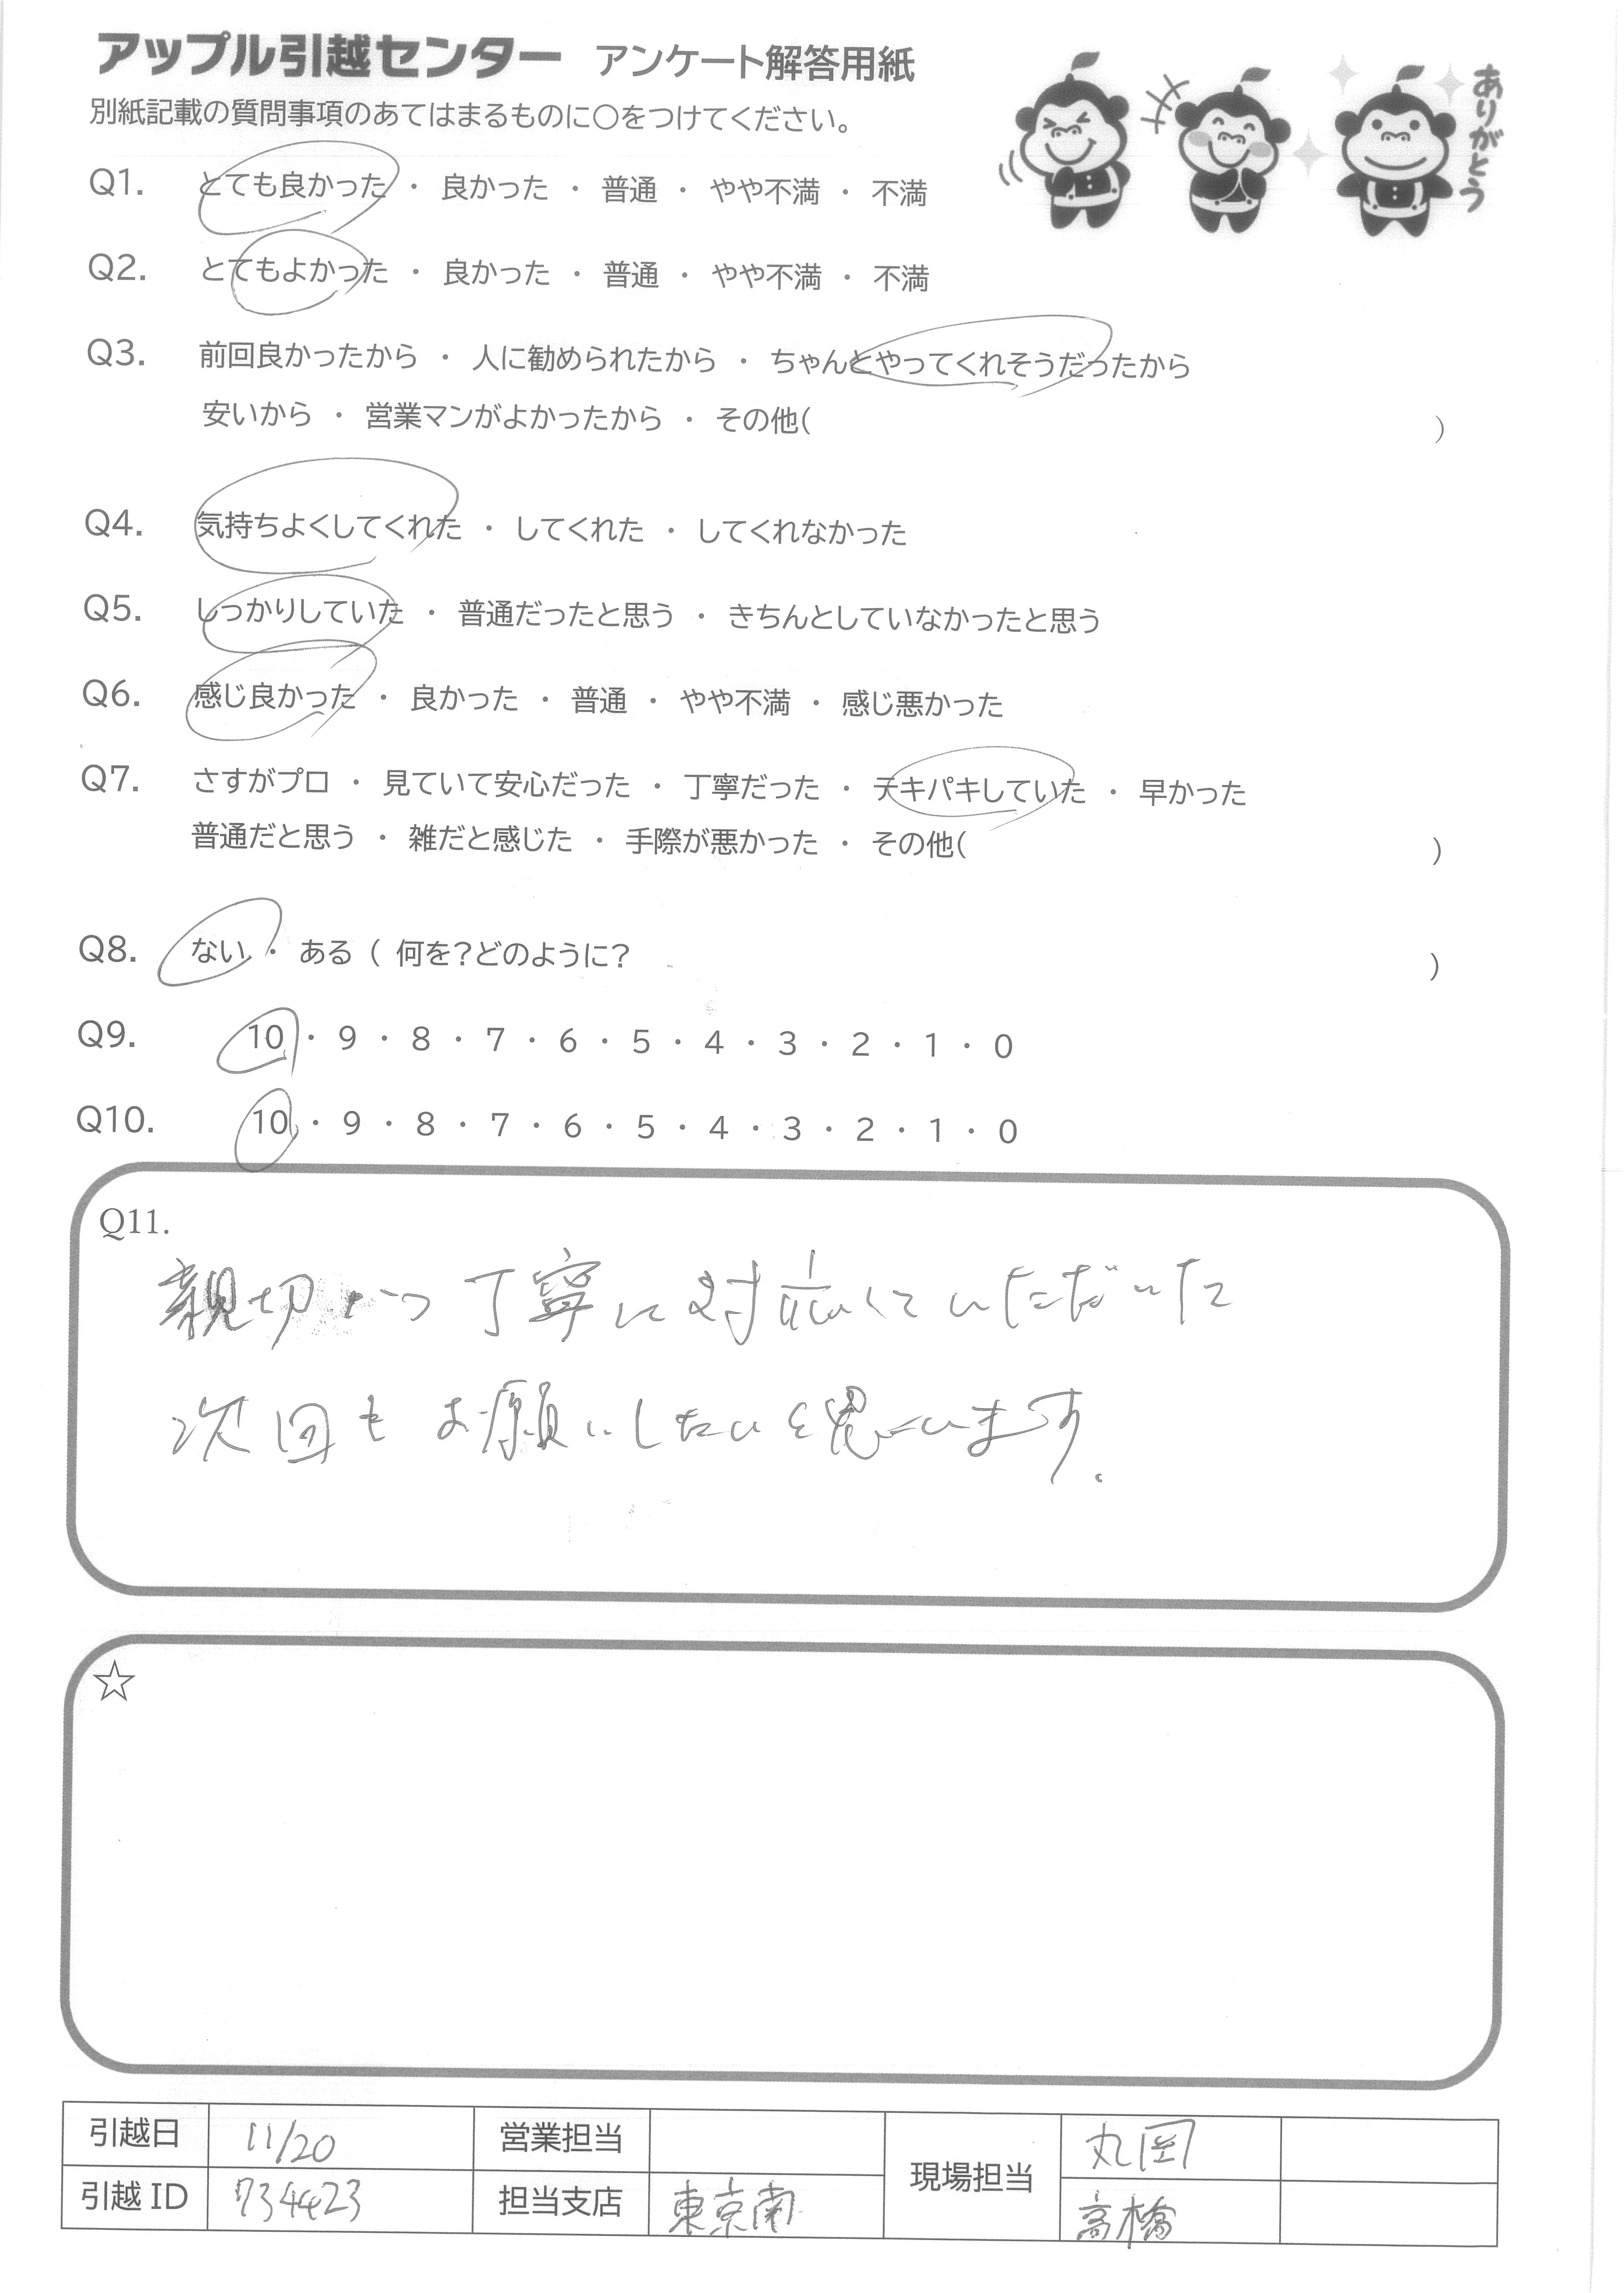 アップル引越センター アンケート解答用紙
ありがとう
別紙記載の質問事項のあてはまるものに〇をつけてください。
Q1. とても良かった ・ 良かった ・ 普通 ・ やや不満 ・ 不満
Q2. とてもよかった ・ 良かった ・ 普通 ・ やや不満 ・ 不満
Q3. 前回良かったから ・ 人に勧められたから ・ ちゃんとやってくれそうだったから
安いから ・ 営業マンがよかったから ・ その他( )
Q4. 気持ちよくしてくれた ・ してくれた ・ してくれなかった
Q5. しっかりしていた ・ 普通だったと思う ・ きちんとしていなかったと思う
Q6. 感じ良かった ・ 良かった ・ 普通 ・ やや不満 ・ 感じ悪かった
Q7. さすがプロ ・ 見ていて安心だった ・ 丁寧だった ・ テキパキしていた ・ 早かった
普通だと思う ・ 雑だと感じた ・ 手際が悪かった ・ その他( )
Q8. ない ・ ある ( 何を?どのように? )
Q9. 10 ・ 9 ・ 8 ・ 7 ・ 6 ・ 5 ・ 4 ・ 3 ・ 2 ・ 1 ・ 0
Q10. 10 ・ 9 ・ 8 ・ 7 ・ 6 ・ 5 ・ 4 ・ 3 ・ 2 ・ 1 ・ 0
Q11.
親切かつ丁寧に対応していただいた
次回もお願いしたいと思います。
☆
引越日 11/20 営業担当 現場担当 丸岡
引越ID 734423 担当支店 東京南 高橋